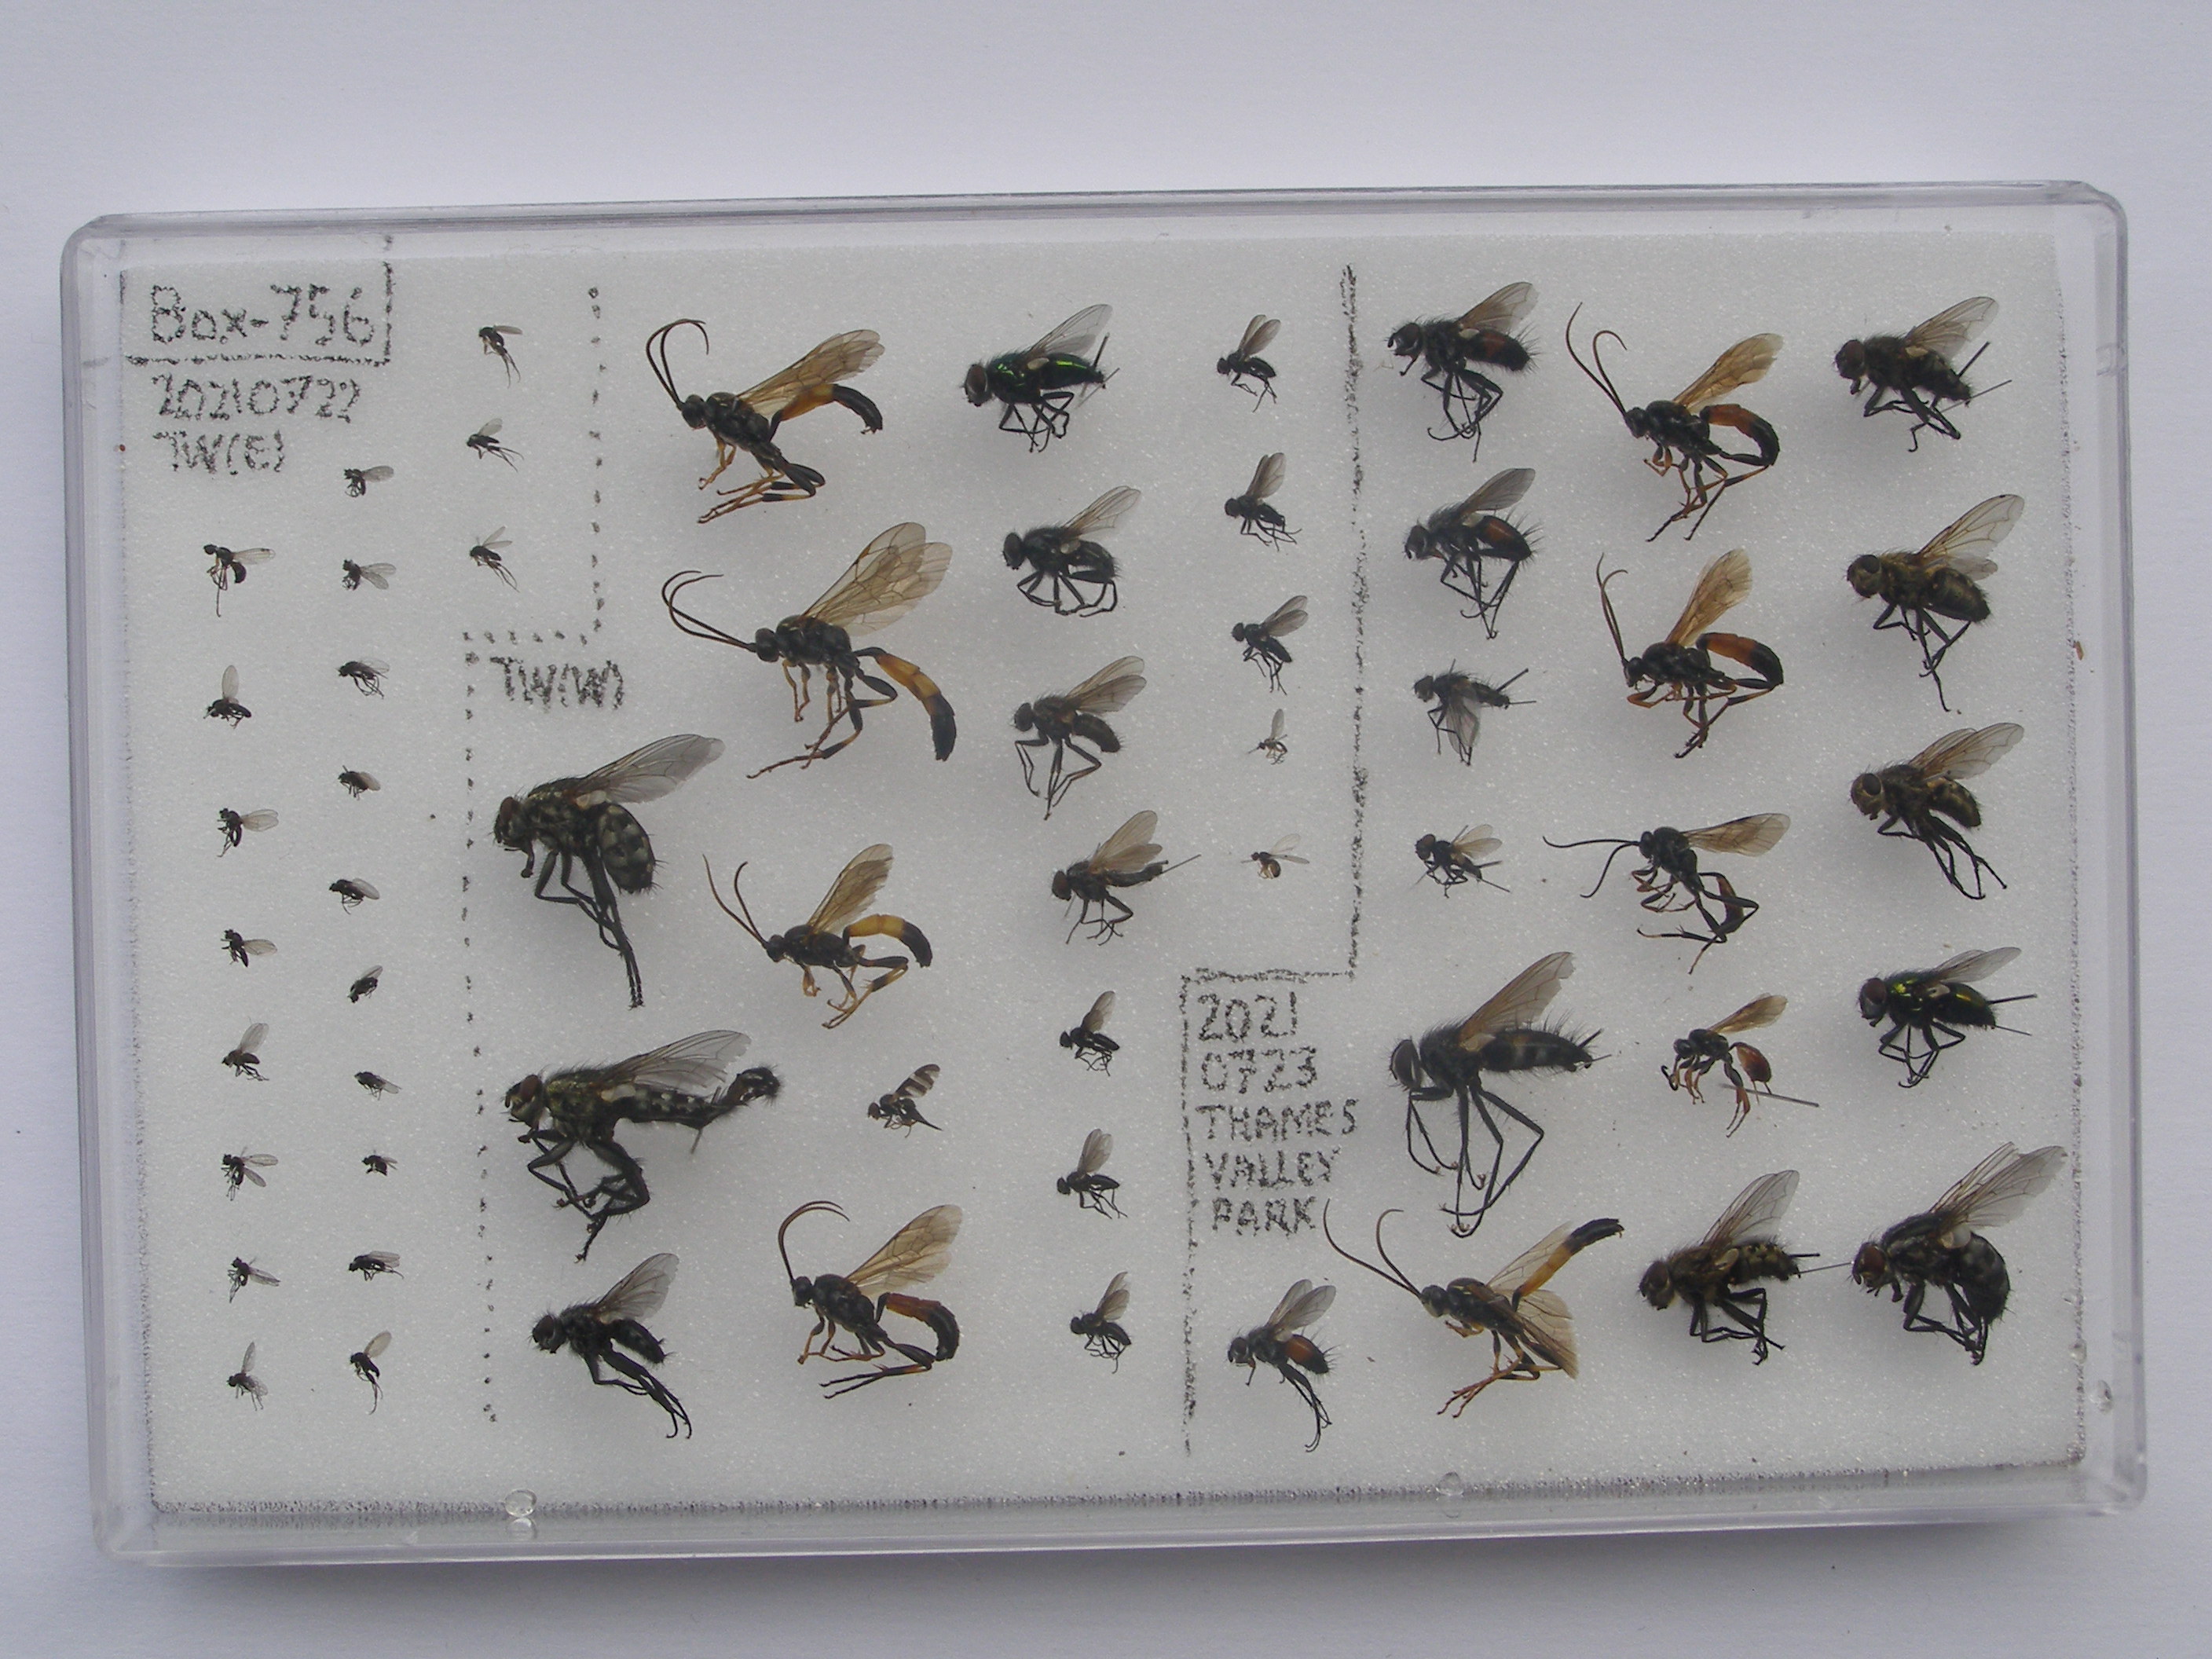 Box-756
20210722
TW(E)
TW(W)
2021
0723
THAMES
VALLEY
PARK